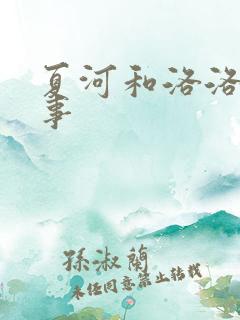 夏河和洛洛
事
孫淑蘭
未经同意禁止转载